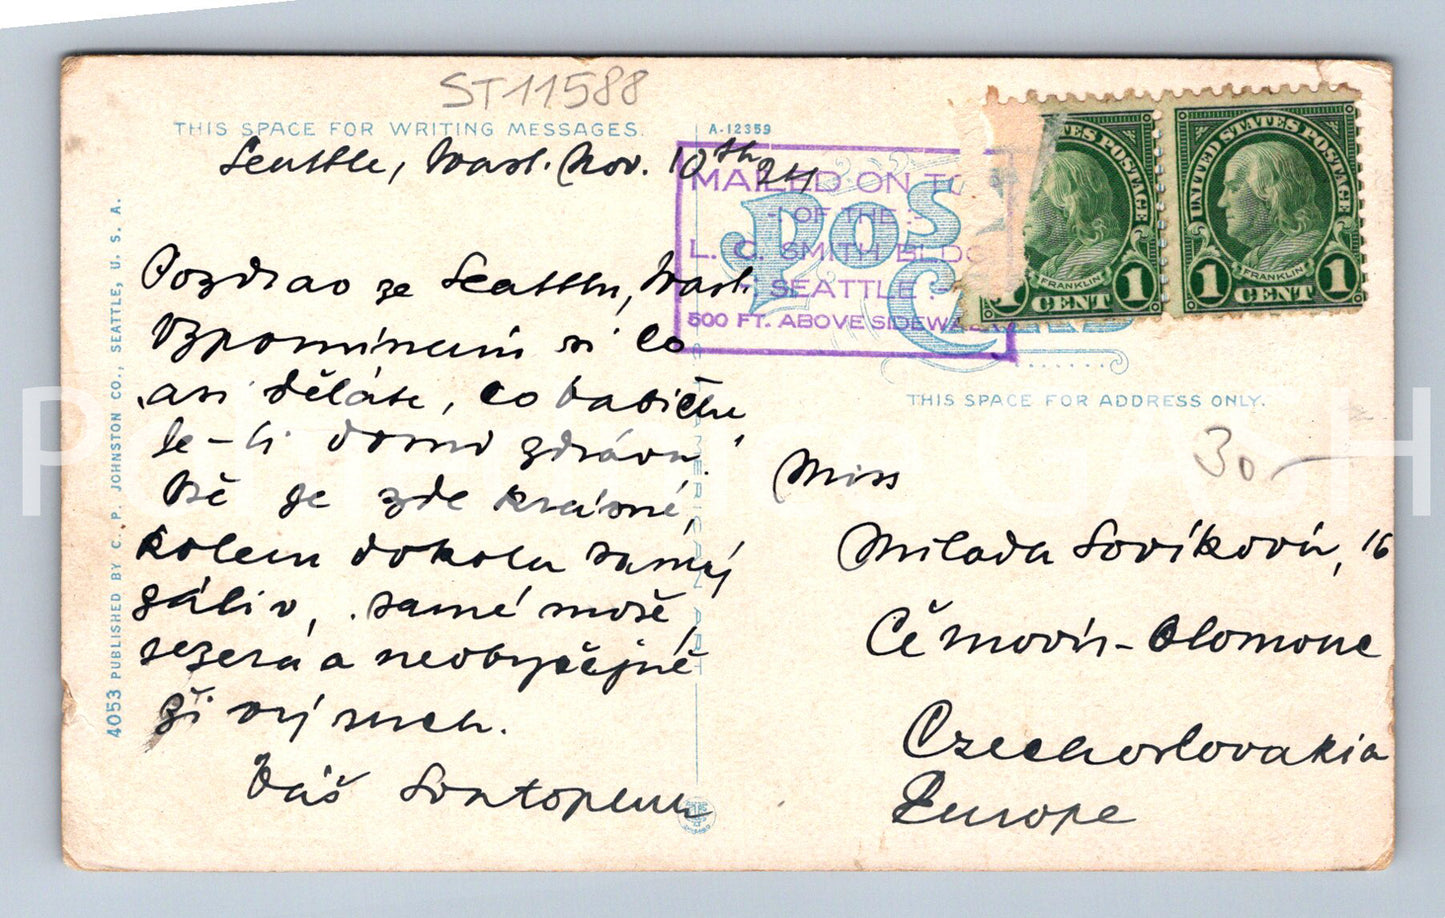 ST11588
THIS SPACE FOR WRITING MESSAGES.
A-12359
Seattle, Wash. Nov. 10th 24
Pozdrav ze Seattlu, Wash.
Vzpomínám si co
asi děláte, co babička
Je-li doma zdráva.
Vše je zde krásné,
kolem dokola samý
záliv, samé moře,
jezera a neobyčejně
živý ruch.
Váš
4053 PUBLISHED BY C. P. JOHNSTON CO., SEATTLE, U. S. A.
MAILED ON TO
- OF THE :-
L. C. SMITH BLDG
SEATTLE :-
500 FT. ABOVE SIDEWA
POST CARD
UNITED STATES POSTAGE
ES POSTAGE
FRANKLIN
FRANKLIN
1 CENT 1
CENT 1
THIS SPACE FOR ADDRESS ONLY.
30,-
Miss
Milada Sovíková, 16
Černovír-Olomouc
Czechoslovakia
Europe
AMERICAN ART